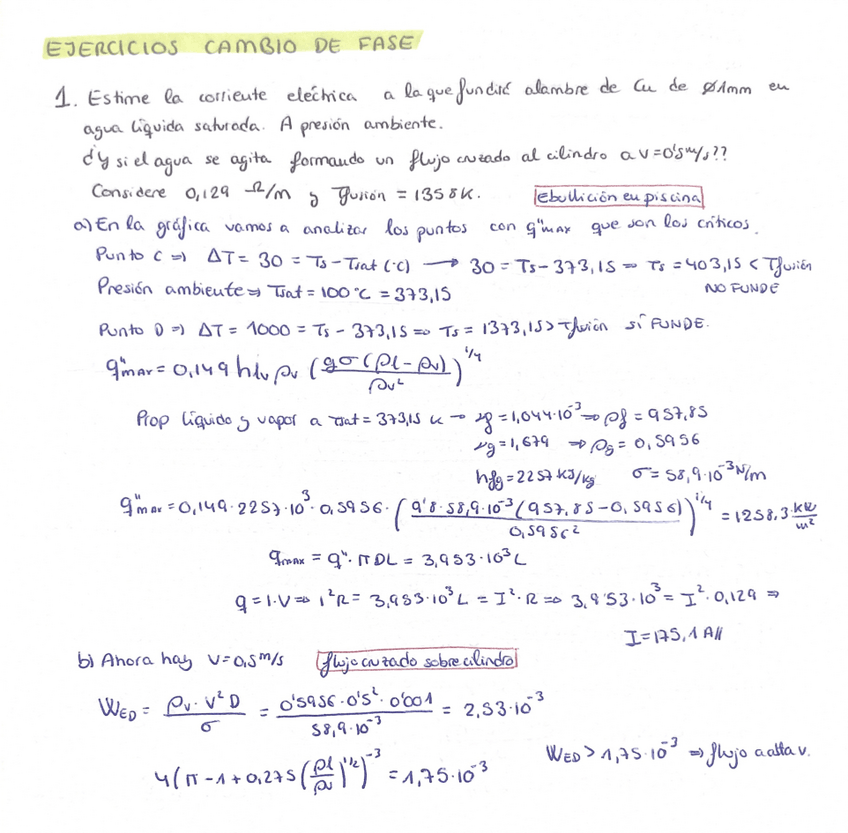 EJERCICIOS CAMBIO DE FASE
1. Estime la corriente eléctrica a la que fundiré alambre de Cu de Ø1mm en
agua líquida saturada. A presión ambiente.
¿Y si el agua se agita formando un flujo cruzado al cilindro a v=0'5m/s??
Considere 0,129 Ω/m y Tfusión = 1358K. ebullición en piscina
a) En la gráfica vamos a analizar los puntos con q"max que son los críticos.
Punto C ⇒ ΔT = 30 = Ts - Tsat (°C) → 30 = Ts - 373,15 ⇒ Ts = 403,15 < Tfusión
Presión ambiente ⇒ Tsat = 100°C = 373,15 NO FUNDE
Punto D ⇒ ΔT = 1000 = Ts - 373,15 ⇒ Ts = 1373,15 > Tfusión SÍ FUNDE.
q"max = 0,149 hlv ρv (gσ(ρl - ρv)/ρv²)^1/4
Prop líquido y vapor a Tsat = 373,15 K → νf = 1,044·10^-3 ⇒ ρf = 957,85
νg = 1,679 ⇒ ρg = 0,5956
hfg = 2257 kJ/kg σ = 58,9·10^-3 N/m
q"max = 0,149·2257·10^3·0,5956·(9'8·58,9·10^-3(957,85-0,5956)/0,5956²)^1/4 = 1258,3 kW/m²
qmax = q"·πDL = 3,953·10^3 L
q = I·V ⇒ I²R = 3,953·10^3 L = I²·R ⇒ 3,953·10^3 = I²·0,129 ⇒
I = 175,1 A//
b) Ahora hay v = 0,5 m/s flujo cruzado sobre cilindro
WED = ρv·V²D/σ = 0'5956·0'5²·0'001/58,9·10^-3 = 2,53·10^-3
WED > 1,75·10^-3 ⇒ flujo a alta v.
4(π - 1 + 0,275(ρl/ρv)^1/2)^-3 = 1,75·10^-3